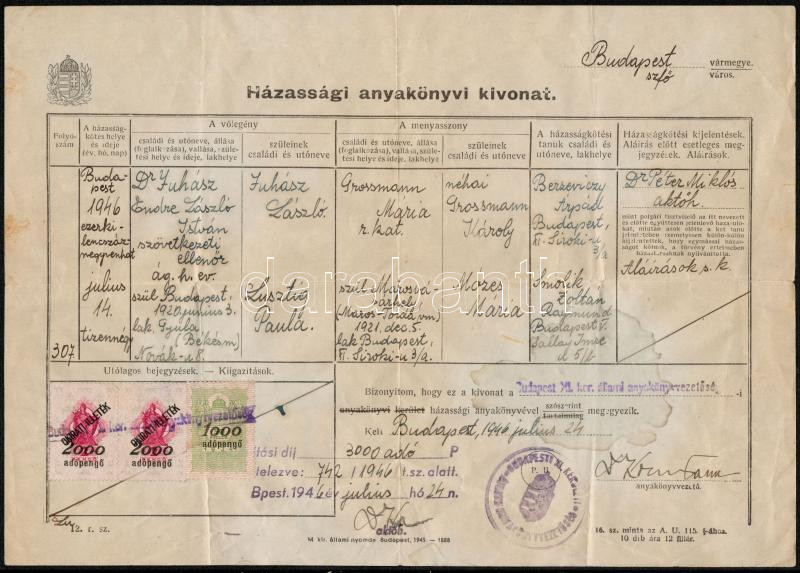 Budapest vármegye.
szfő város.
Házassági anyakönyvi kivonat.
Folyó-
szám
A házasság-
kötés helye
és ideje
(év, hó, nap)
A vőlegény
családi és utóneve, állása
(foglalkozása), vallása, szüle-
tési helye és ideje, lakhelye
szüleinek
családi és utóneve
A menyasszony
családi és utóneve, állása
(foglalkozása), vallása, szüle-
tési helye és ideje, lakhelye
szüleinek
családi és utóneve
A házasságkötési
tanuk családi és
utóneve, lakhelye
Házasságkötési kijelentések.
Aláírás előtt esetleges meg-
jegyzések. Aláírások.
307
Buda-
pest
1946
ezerki-
lencszáz-
negyvenhat
július
14.
tizennégy
Dr Juhász
Endre László
István
szövetkezeti
ellenőr
ág. h. ev.
szül Budapest,
1920. június 3.
lak. Gyula
(Békésm)
Novák-u 8.
Juhász
László.
Lusztig
Paula.
Grossmann
Mária
r. kat.
szül Marosvá-
sárhely
(Maros-Torda vm)
1921. dec. 5.
lak Budapest,
XI. Siroki-u 3/a.
néhai
Grossmann
Károly
Mozes
Mária
Berzeviczy
Árpád
Budapest,
XI. Siroki-u
3/a
Smolik
Zoltán
Raymund
Budapest V.
Sallay Imre
u 5/b
Dr Péter Miklós
aktőh.
mint polgári tisztviselő az itt nevezett
és előtte együttesen jelenlévő háza-
sulókat, miután azok előtte a két tanu
jelenlétében személyesen külön-külön
kijelentették, hogy egymással házas-
ságot kötnek, a törvény értelmében
házastársaknak nyilvánította.
Aláírások s. k.
Utólagos bejegyzések. — Kiigazítások.
OKIRATI ILLETÉK
2000
adópengő
OKIRATI ILLETÉK
2000
adópengő
1000
adópengő
Bizonyítom, hogy ez a kivonat a Budapest XI. ker. állami anyakönyvvezetőség -i
anyakönyvi kerület házassági anyakönyvével szószerint
tartalmilag megegyezik.
Kelt Budapest, 1946 július 24
díj 3000 adó P
742 / 1946 t.sz. alatt
Bpest. 1946 év július hó 24 n.
aktőh.
P. H.
anyakönyvvezető.
12. r. sz.
M. kir. állami nyomda Budapest, 1945. — 1888
16. sz. minta az A. U. 115. §-ához.
10 drb ára 12 fillér.
darabanth